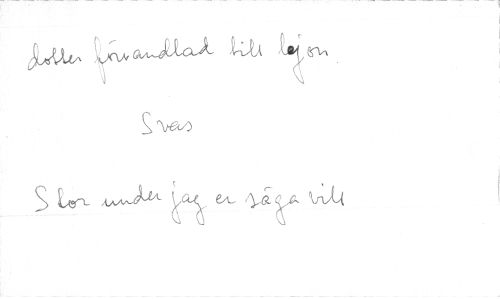 dotter förvandlad till lejon.
Svens
Stor under jag er säga vill